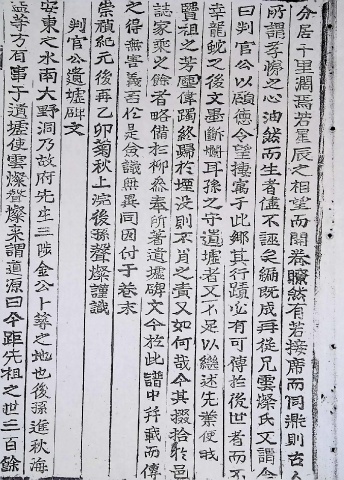 分居千里濶焉若星辰之相望而開卷矙然有若接席而同鼎則古人
所謂孝悌之心油然而生者儘不誣矣編既成再從兄雲燦氏文謂余
曰判官公以碩德令望棲寓于此鄉其行蹟必有可傳於後世者而不
幸龍蛇之後文墨斷爛耳孫之守遺墟者又不足以繼述先業使我
賢祖之芳塵偉躅終歸於堙沒則不肖之責又如何哉今其掇拾於邑
誌家乘之餘者略備於柳 所著遺墟碑文今於此譜中幷載而傳
之得無害義否於是僉議無異同因付于卷末
崇禎紀元後再乙卯菊秋上浣後孫聲燦謹識
判官公遺墟碑文
安東之水南大野洞乃故府先生三陟金公卜築之地也後孫進秋海
益等方有事于遺墟使雲燦聲燦來謂道源曰今距先祖之世三百餘